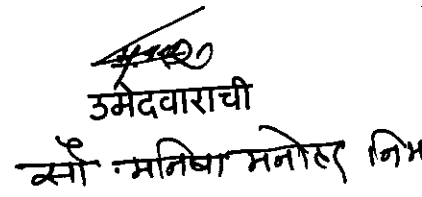 उमेदवाराची
सौ. मनिषा मनोहर निम